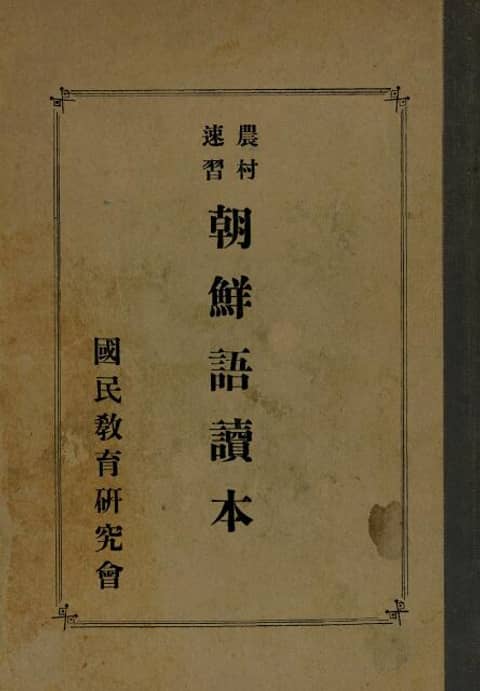 農村
速習
朝鮮語讀本
國民敎育硏究會